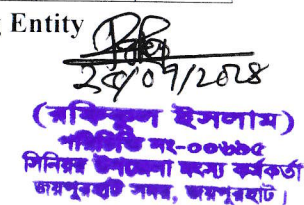 Entity
(রফিকুল ইসলাম)
পরিচিতি নং-০০৬৯৫
সিনিয়র উপজেলা মৎস্য কর্মকর্তা
জয়পুরহাট সদর, জয়পুরহাট।